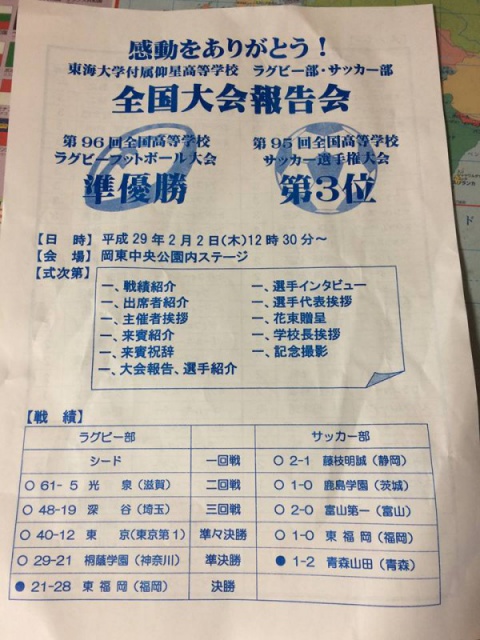 感動をありがとう！
東海大学付属仰星高等学校　ラグビー部・サッカー部
全国大会報告会
第96回全国高等学校
ラグビーフットボール大会
準優勝
第95回全国高等学校
サッカー選手権大会
第3位
【日　時】平成29年2月2日(木)12時30分～
【会　場】岡東中央公園内ステージ
【式次第】
一、戦績紹介
一、出席者紹介
一、主催者挨拶
一、来賓紹介
一、来賓祝辞
一、大会報告、選手紹介
一、選手インタビュー
一、選手代表挨拶
一、花束贈呈
一、学校長挨拶
一、記念撮影
【戦　績】
ラグビー部　サッカー部
シード　一回戦　○ 2-1 藤枝明誠（静岡）
○ 61- 5 光　泉（滋賀）　二回戦　○ 1-0 鹿島学園（茨城）
○ 48-19 深　谷（埼玉）　三回戦　○ 2-0 富山第一（富山）
○ 40-12 東　京(東京第1)　準々決勝　○ 1-0 東福岡（福岡）
○ 29-21 桐蔭学園（神奈川）　準決勝　● 1-2 青森山田（青森）
● 21-28 東福岡（福岡）　決勝